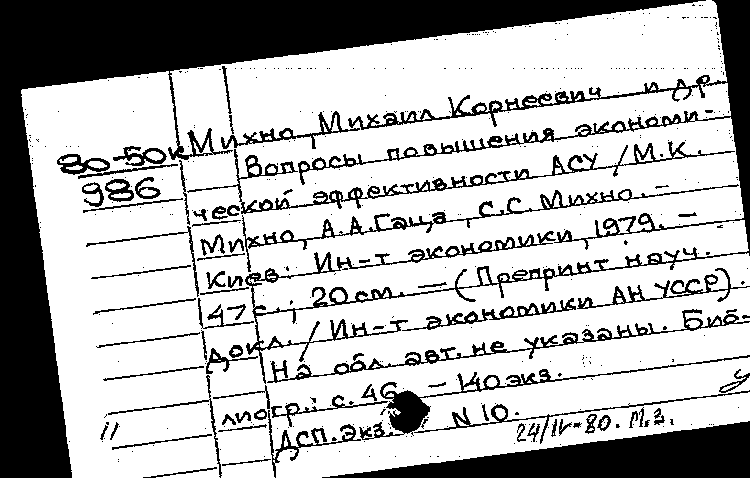 Михно, Михаил Корнеевич и др.
80-50к Вопросы повышения экономи-
986 ческой эффективности АСУ / М.К.
Михно, А.А. Гаца, С.С. Михно. –
Киев: Ин-т экономики, 1979. –
47 с.; 20 см. — (Препринт науч.
докл. / Ин-т экономики АН УССР).
На обл. авт. не указаны. Биб-
лиогр.: с. 46 – 140 экз.
ДСП. Экз. N 10.
24/IV-80. М.З.
11
у